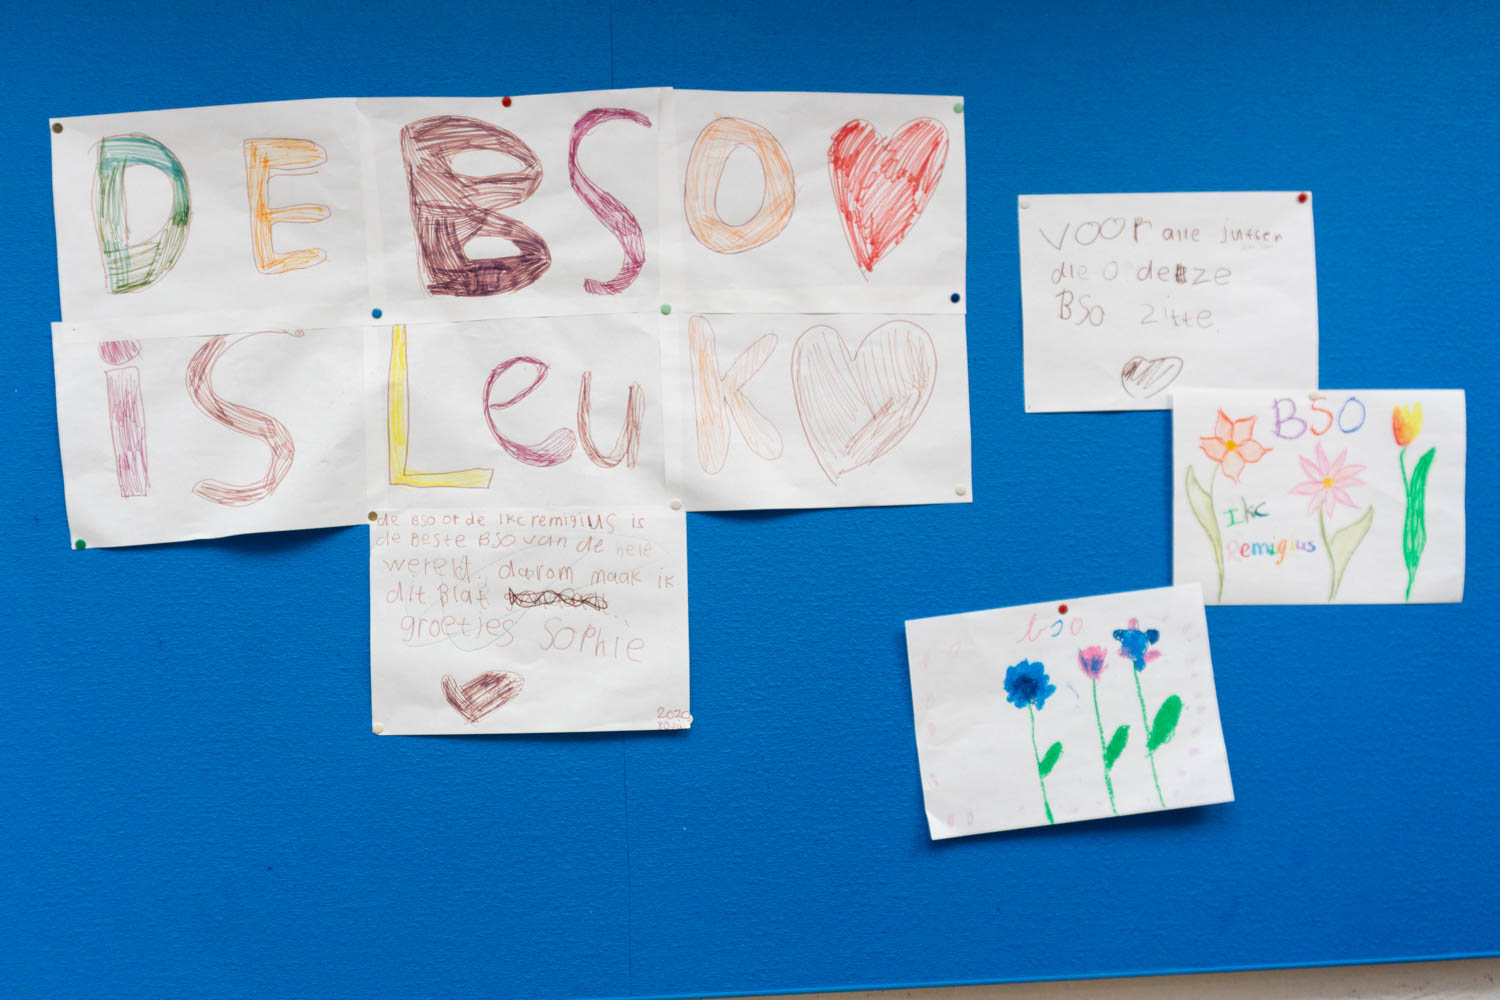 DE BSO
is LeuK
de BSO op de Ikc remigius is
de Beste BSO van de hele
wereld. daarom maak ik
dit Blat
groetjes Sophie
2020
voor alle juffen
die o deze
BSO zitte.
BSO
Ikc
Remigius
bso